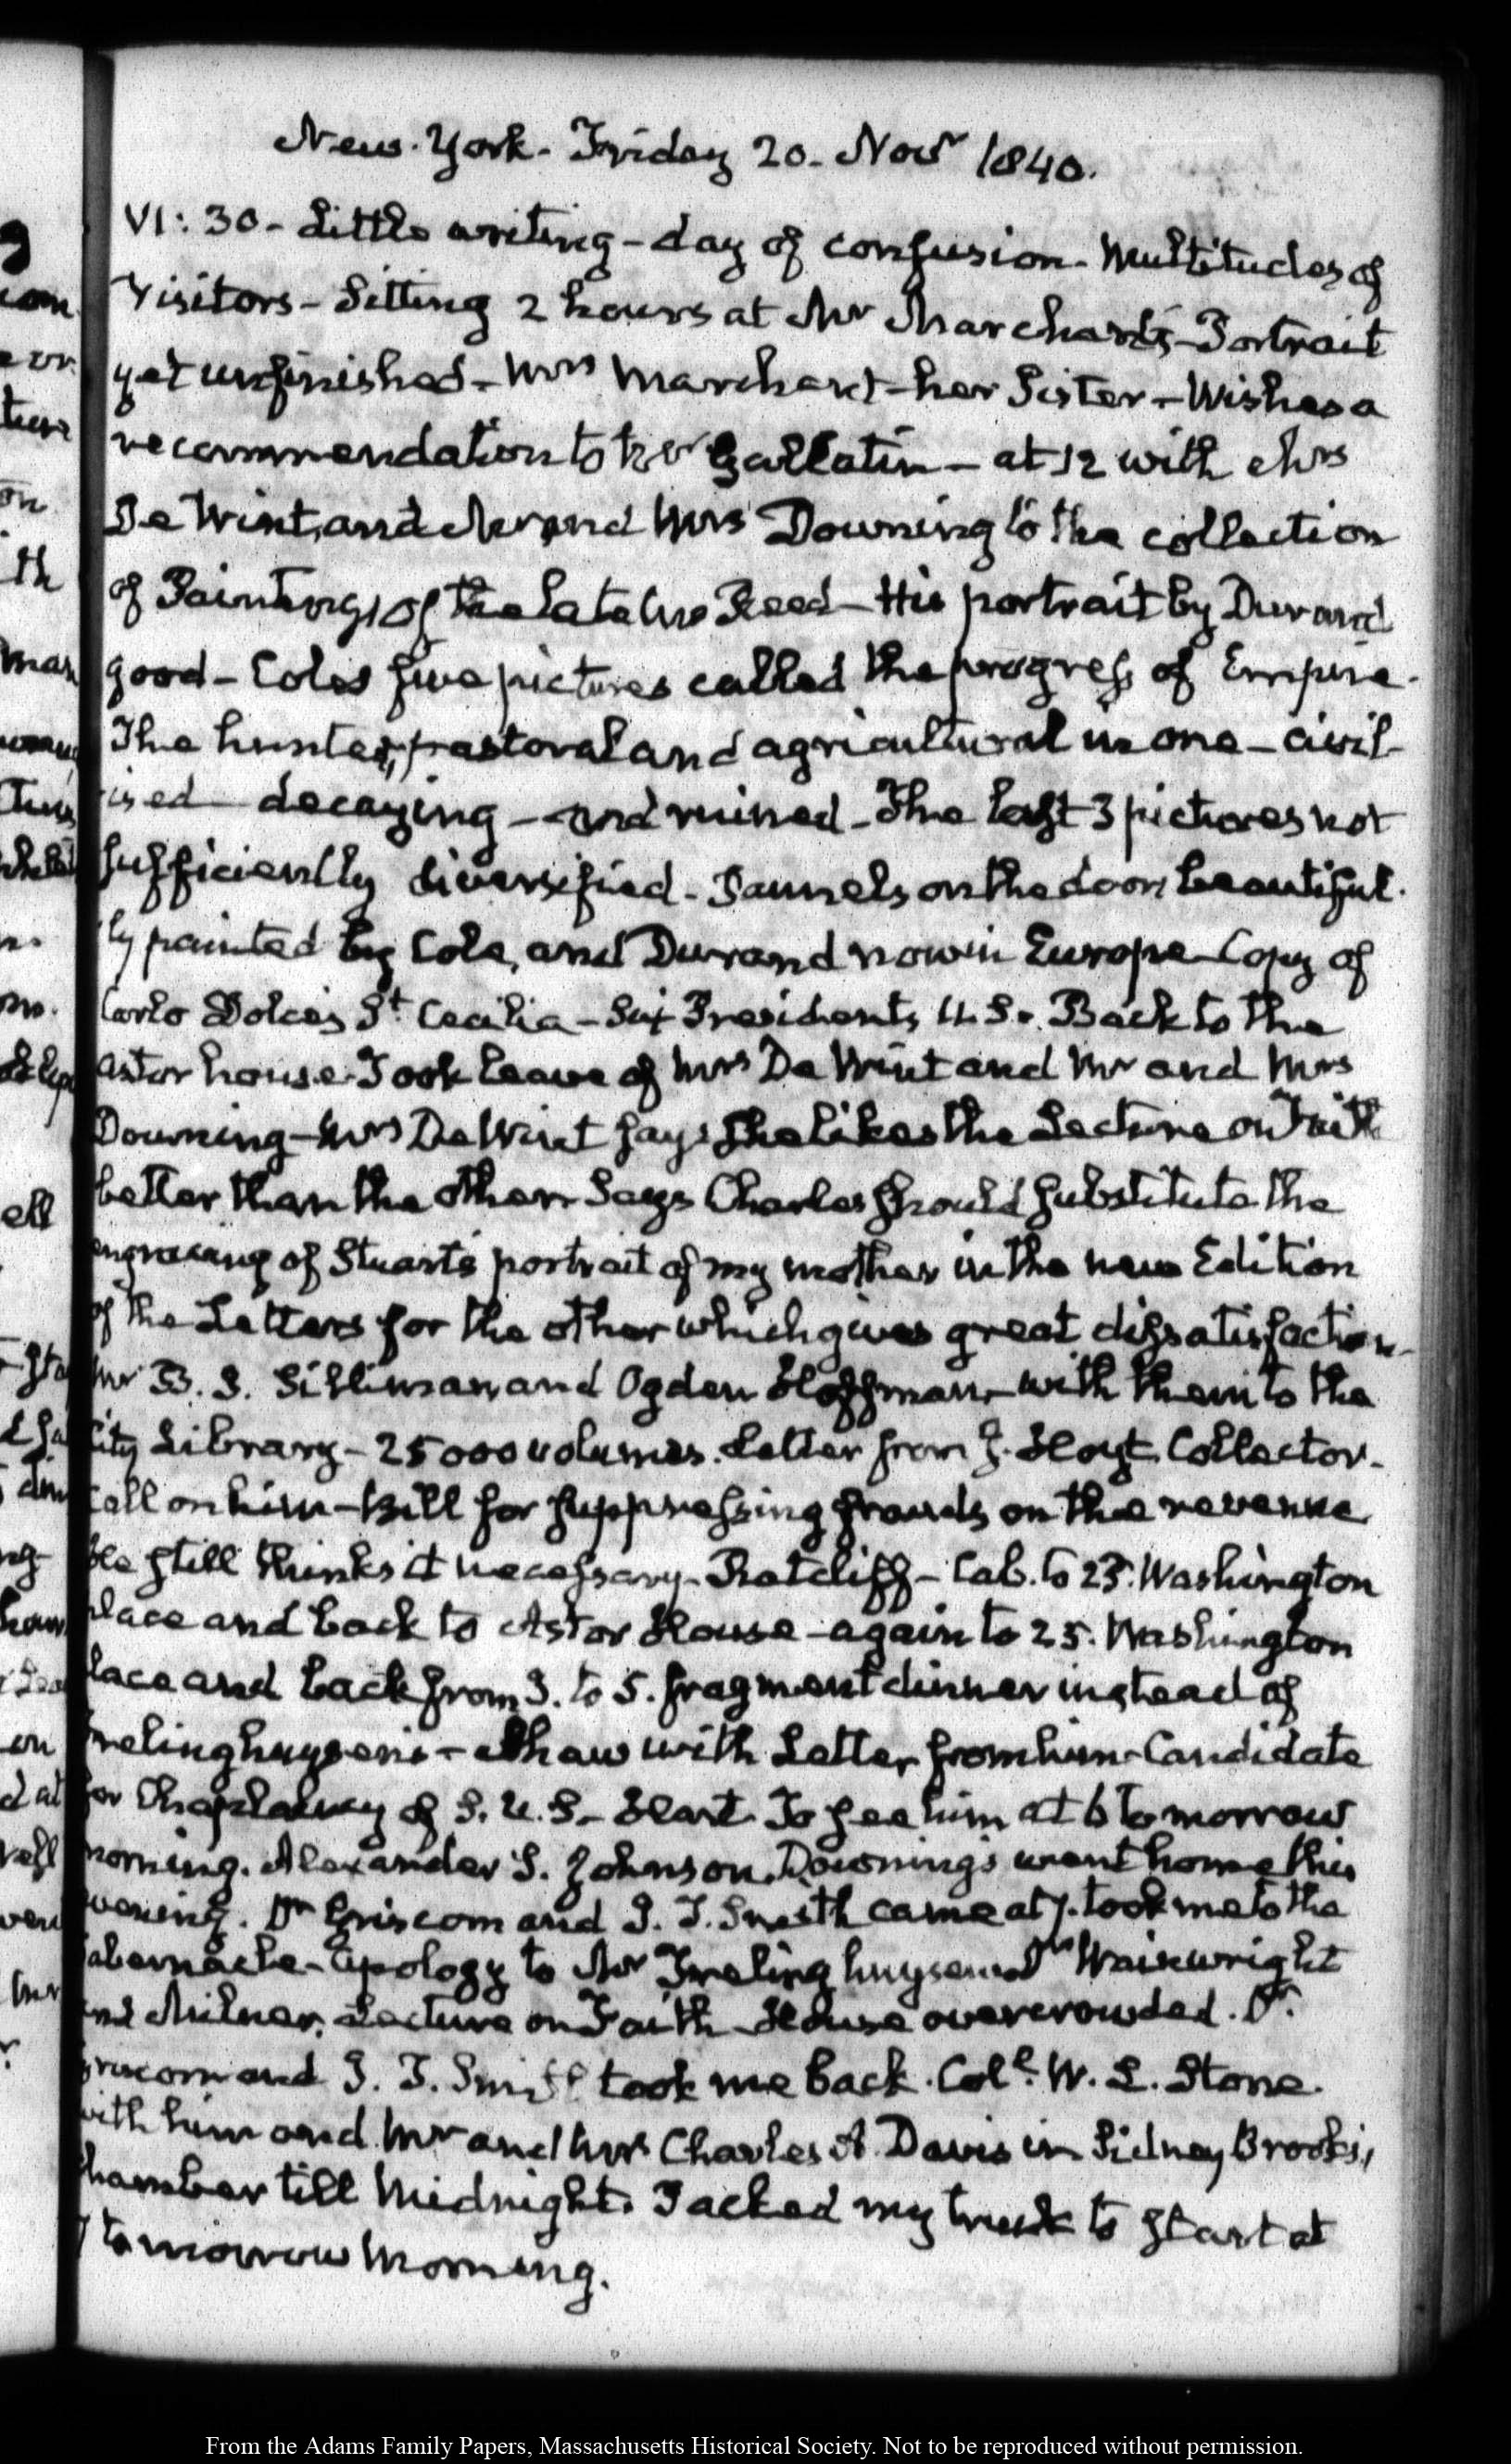 New-York- Friday 20- Novr 1840.
VI: 30- Little writing - day of confusion- Multitudes of
Visitors - Sitting 2 hours at Mr Marchant's - Portrait
yet unfinished - Mrs Marchant - her Sister - Wishes a
recommendation to Mr Gallatin - at 12 with Mrs
De Wint, and Mr and Mrs Downing to the collection
of Paintings of the late Mr Reed - His portrait by Durand
good - Coles five pictures called the progress of Empire.
The hunter, pastoral and agricultural in one - civil-
ised - decaying - and ruined - The last 3 pictures not
sufficiently diversified - Pannels on the door, beautiful-
ly painted by Cole, and Durand now in Europe - Copy of
Carlo Dolce's St Cecilia - Six Presidents U.S. Back to the
Astor house. Took leave of Mrs De Wint and Mr and Mrs
Downing - Mrs De Wint says she likes the Lecture on Faith
better than the other. Says Charles should substitute the
engraving of Stuart's portrait of my mother in the new Edition
of the Letters for the other which gives great dissatisfaction-
Mr B. D. Silliman and Ogden Hoffman - with them to the
City Library - 25000 volumes. Letter from J. Hoyt Collector-
Call on him - Bill for suppressing frauds on the revenue
He still thinks it necessary - Ratcliff - Cab. to 25. Washington
place and back to Astor House - again to 25. Washington
place and back from 3. to 5. fragment dinner instead of
Frelinghuysen's - Shaw with Letter from him - Candidate
for Chaplaincy of S. U. S. - Hart. To see him at 6 tomorrow
morning. Alexander S. Johnson. Downings went home this
evening. Dr Griscom and J. T. Smith came at 7. took me to the
Tabernacle - Apology to Mr Frelinghuysen Drs Wainwright
and Milnor. Lecture on Faith - House overcrowded. Dr.
Griscom and J. T. Smith took me back. Coll. W. L. Stone.
with him and Mr and Mrs Charles A. Davis in Sidney Brooks's
chamber till Midnight. Packed my trunk to start at
7 tomorrow morning.
From the Adams Family Papers, Massachusetts Historical Society. Not to be reproduced without permission.